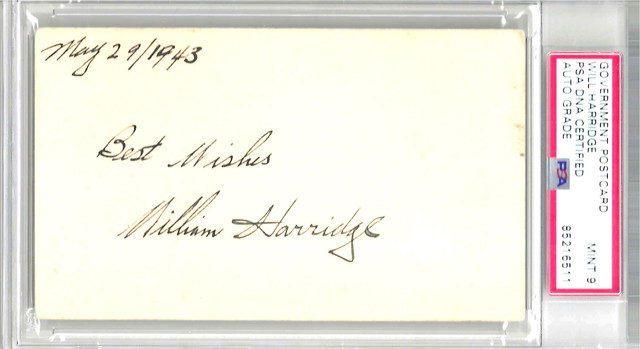 May 29/1943
Best Wishes
William Harridge
GOVERNMENT POSTCARD
WILL HARRIDGE
PSA DNA CERTIFIED
AUTO GRADE
MINT 9
PSA
85216511